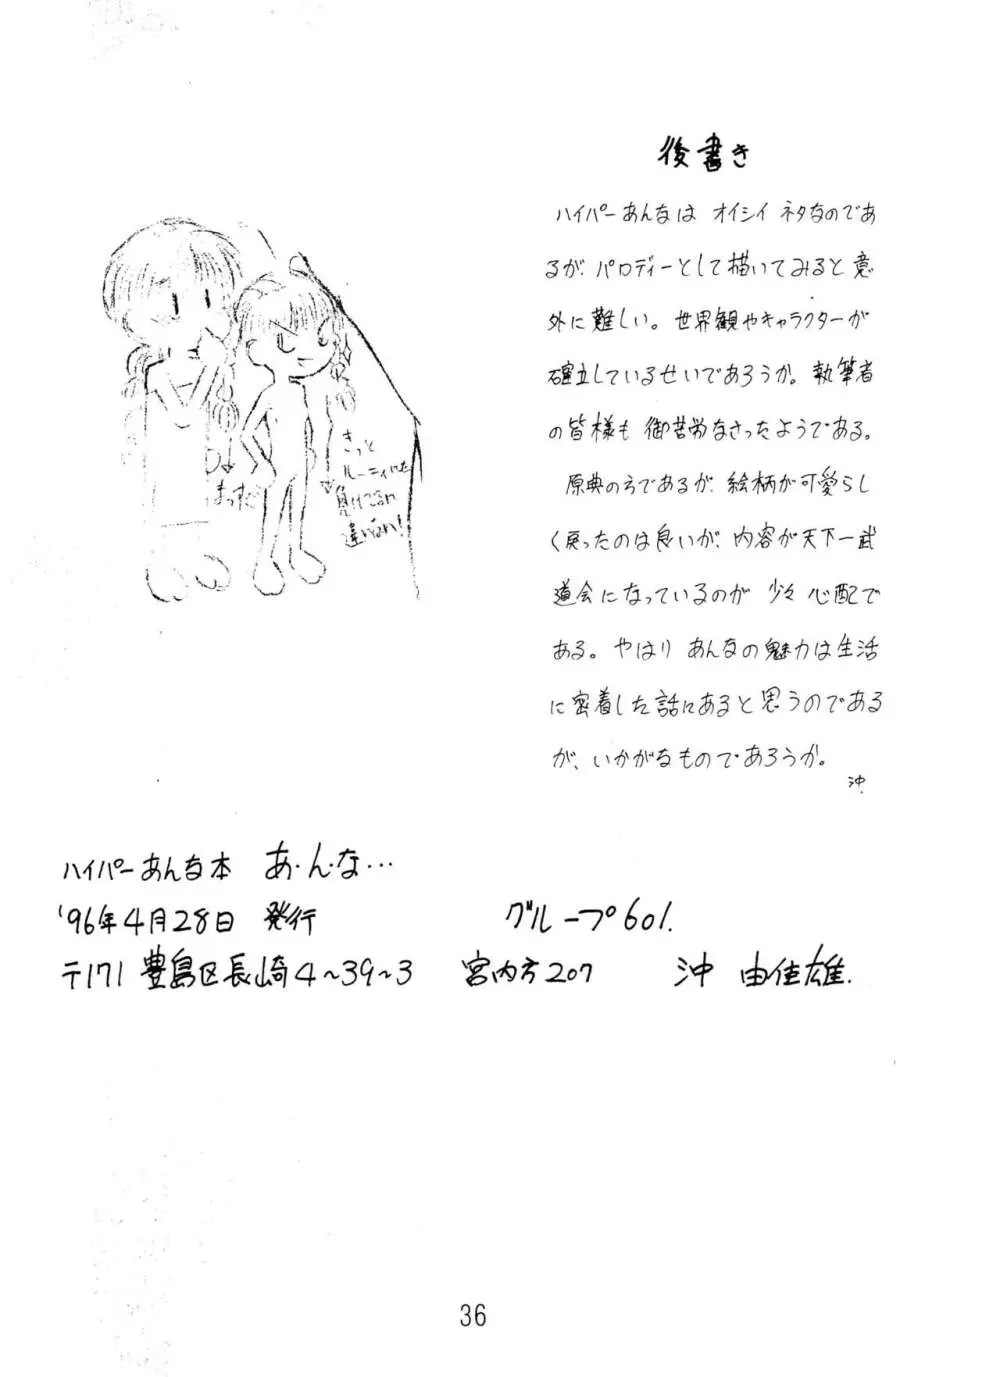 後書き
ハイパーあんなは オイシイ ネタなのであ
るが、パロディーとして描いてみると意
外に難しい。世界観やキャラクターが
確立しているせいであろうか。執筆者
の皆様も 御苦労なさったようである。
原典の方であるが、絵柄が可愛らし
く戻ったのは良いが、内容が天下一武
道会になっているのが 少々 心配で
ある。やはり あんなの魅力は生活
に密着した話にあると思うのである
が、いかがなものであろうか。
沖
きっと
違いない!
ハイパーあんな本 あ・ん・な…
'96年4月28日 発行 グループ601.
〒171 豊島区長崎4~39~3 宮内方207 沖 由佳雄.
36